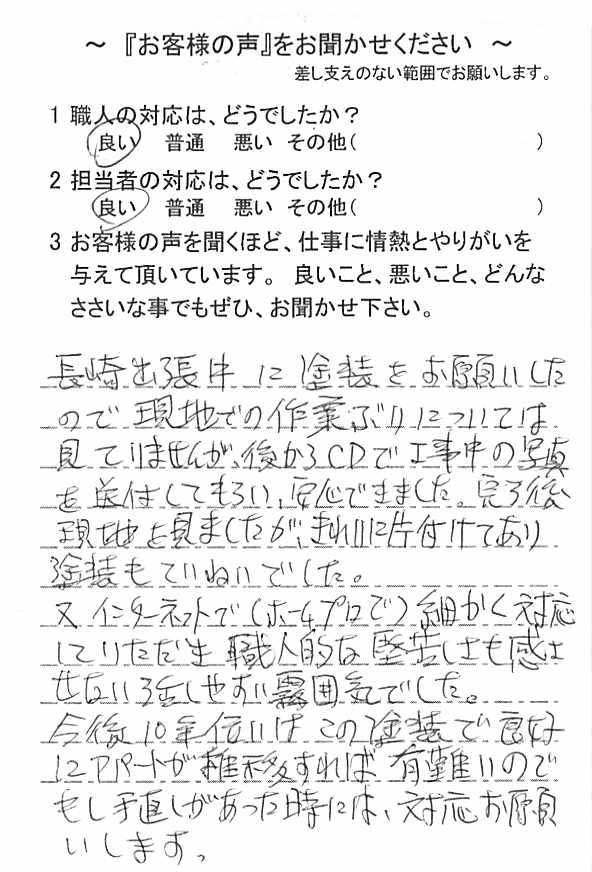 ～ 『お客様の声』をお聞かせください ～
差し支えのない範囲でお願いします。
1 職人の対応は、どうでしたか？
良い 普通 悪い その他( )
2 担当者の対応は、どうでしたか？
良い 普通 悪い その他( )
3 お客様の声を聞くほど、仕事に情熱とやりがいを
与えて頂いています。 良いこと、悪いこと、どんな
ささいな事でもぜひ、お聞かせ下さい。
長崎出張中に塗装をお願いした
ので現地での作業ぶりについては
見ていませんが、後からCDで工事中の写真
を送付してもらい、安心できました。完了後
現地を見ましたが、きれいに片付けてあり
塗装もていねいでした。
又、インターネットで(ホームプロで)細かく対応
していただき 職人的な堅苦しさも感じ
せない話しやすい雰囲気でした。
今後10年位いはこの塗装で良好
にアパートが推移すれば有難いので
もし手直しがあった時には、対応お願
いします。